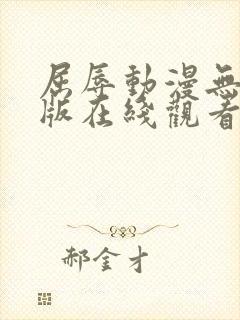 屈辱動漫無
版在綫觀看
郝金才